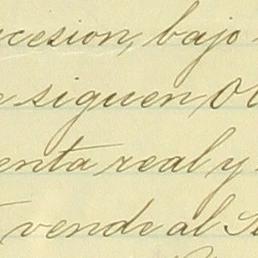 cesion, bajo
siguen
enta real y
vende al